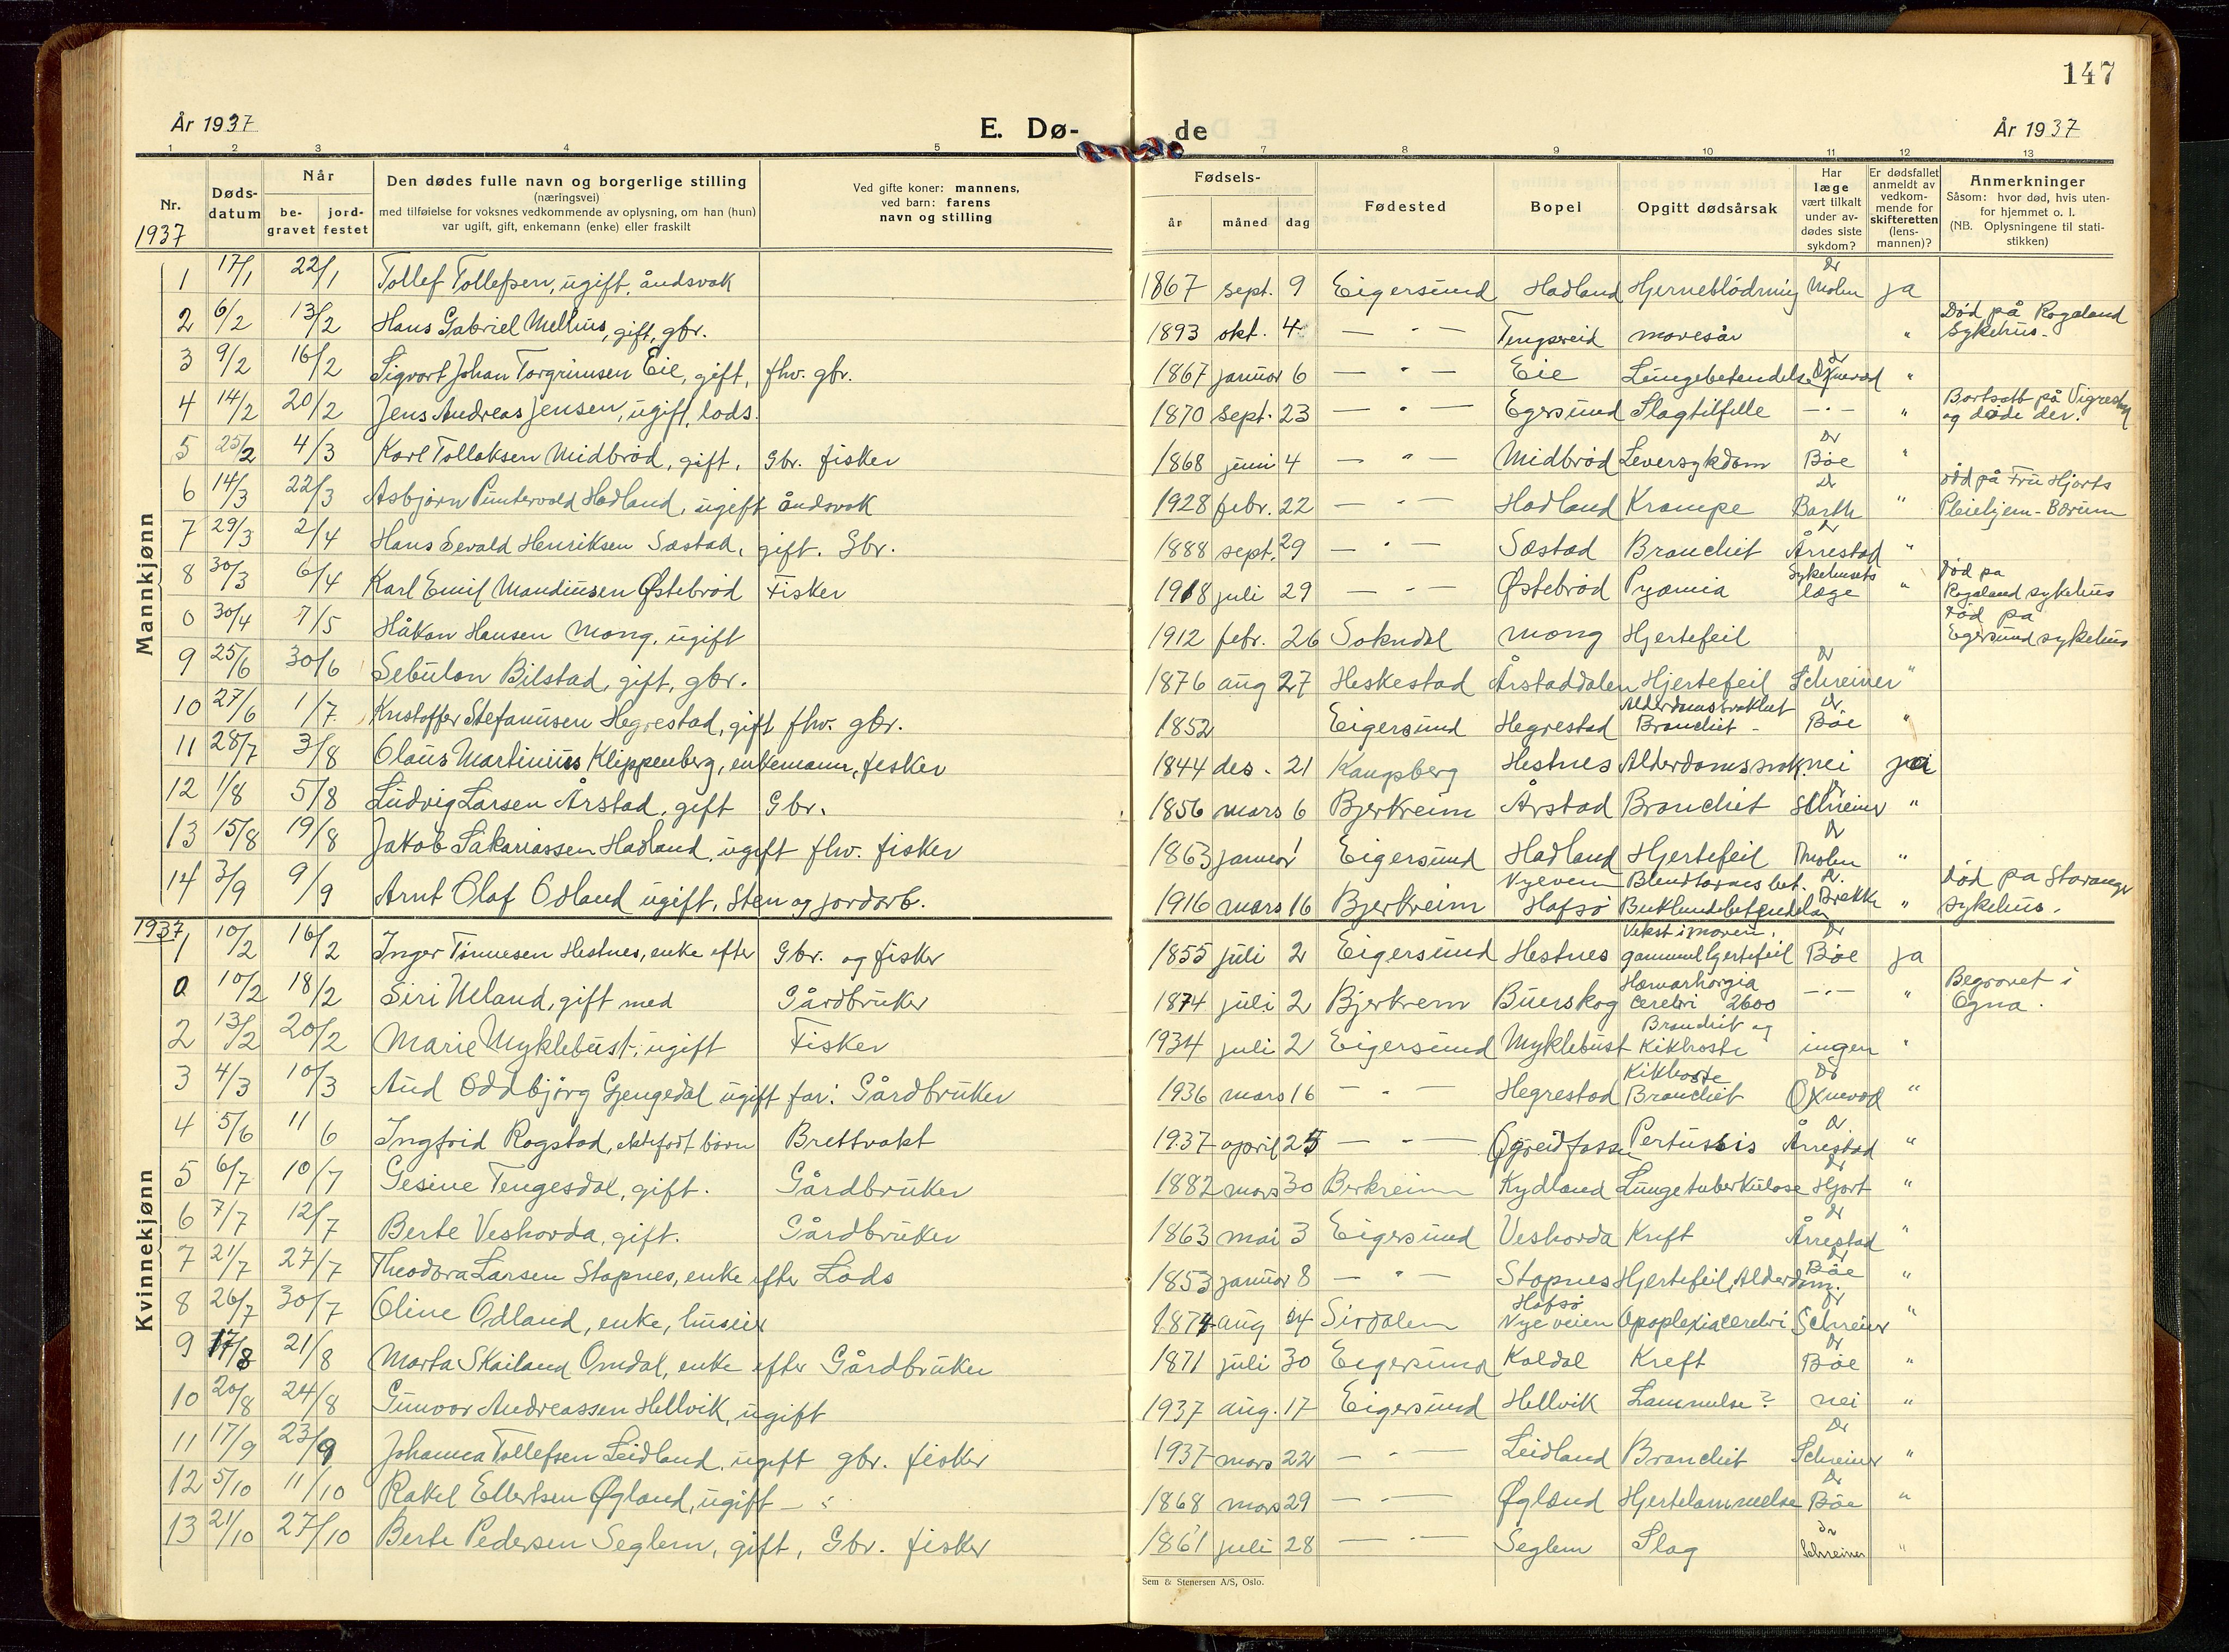 147
År 1937 E. Dø- de År 1937
1 2 3 4 5 7 8 9 10 11 12 13
Nr. 1937 Døds-datum Når be-gravet jord-festet Den dødes fulle navn og borgerlige stilling (næringsvei) med tilføielse for voksnes vedkommende av oplysning, om han (hun) var ugift, gift, enkemann (enke) eller fraskilt Ved gifte koner: mannens, ved barn: farens navn og stilling Fødsels- år måned dag Fødested Bopel Opgitt dødsårsak Har læge vært tilkalt under av-dødes siste sykdom? Er dødsfallet anmeldt av vedkom-mende for skifteretten (lens-mannen)? Anmerkninger Såsom: hvor død, hvis uten-for hjemmet o. l. (NB. Oplysningene til stati-stikken)
Mannkjønn
1 17/1 22/1 Tollef Tollefsen, ugift, åndsvak 1867 sept. 9 Eigersund Hadland Hjerneblödning Dr Molen ja
2 6/2 13/2 Hans Gabriel Melhus, gift, gbr. 1893 okt. 4 — " — Tengsereid mavesår " Död på Rogaland Sykehus.
3 9/2 16/2 Sigvart Johan Torgrimsen Eie, gift, fhv. gbr. 1867 januar 6 — " — Eie Lungebetendelse Dr Oxnevad "
4 14/2 20/2 Jens Andreas Jensen, ugift, lods. 1870 sept. 23 — " — Egersund Slagtilfelle — " — " Bortsatt på Vigrestad og døde der.
5 25/2 4/3 Karl Tollaksen Midbrød, gift, Gbr. fisker 1868 juni 4 — " — Midbrød Leversykdom Dr Bøe "
6 14/3 22/3 Asbjørn Puntervold Hadland, ugift åndsvak 1928 febr. 22 — " — Hadland Krampe Dr Barth " död på Fru Hjorts Pleiehjem - Bærum
7 29/3 2/4 Hans Sevald Henriksen Sæstad, gift. Gbr. 1888 sept. 29 — " — Sæstad Bronchit Dr Årrestad "
8 30/3 6/4 Karl Emil Mandiusen Østebrød Fisker 1918 juli 29 — " — Østebrød Pyæmia Sykehusets læge " Död på Rogaland sykehus
0 30/4 7/5 Håkon Hansen Mong, ugift 1912 febr. 26 Sokndal Mong Hjertefeil Död på Egersund sykehus
9 25/6 30/6 Sebulon Bilstad, gift, gbr. 1876 aug 27 Heskestad Årstaddalen Hjertefeil Dr Schreiner "
10 27/6 1/7 Kristoffer Stefanusen Hegrestad, gift fhv. gbr. 1852 Eigersund Hegrestad Alderdomssvakhet Bronchit - Dr Bøe "
11 28/7 3/8 Olaus Martinius Klippenberg, enkemann, fisker 1844 des. 21 Hestnes Alderdomssvak. nei ja
12 1/8 5/8 Ludvig Larsen Årstad, gift Gbr. 1856 mars 6 Bjerkreim Årstad Bronchit Dr Schreiner "
13 15/8 19/8 Jakob Sakariassen Hadland, ugift fhv. fisker 1863 januar 1 Eigersund Hadland Hjertefeil Dr Molen "
14 3/9 9/9 Arnt Olaf Odland ugift, Sten og jordarb. 1916 mars 16 Bjerkreim Nyeveien Hafsø Blendtarmsbet. Bukhindebetendelse Dr. Brekke " Död på Stavanger sykehus.
Kvinnekjønn
1937
1 10/2 16/2 Inger Tønnesen Hestnes, enke efter Gbr. og fisker 1855 juli 2 Eigersund Hestnes Vekst i maven, gammel hjertefeil Dr Bøe ja
0 10/2 18/2 Siri Ueland, gift med Gårdbruker 1874 juli 2 Bjerkrem Buerskog Hæmorhargia Cerebri 2600 — " — " Begravet i Ogna.
2 13/2 20/2 Marie Myklebust, ugift Fisker 1934 juli 2 Eigersund Myklebust Bronchit og Kikhoste ingen "
3 4/3 10/3 Aud Oddbjörg Gjengedal ugift far: Gårdbruker 1936 mars 16 — " Hegrestad Kikhoste Bronchit Dr Oxnevad "
4 5/6 11/6 Ingfrid Rogstad, ektefødt barn Brettvakt 1937 april 25 — " — Øgreidfossen Pertussis Dr Årrestad "
5 6/7 10/7 Gesine Tengesdal, gift. Gårdbruker 1882 mars 30 Berkreim Kydland Lungetuberkulose Dr Hjort "
6 7/7 12/7 Berte Veshovda, gift. Gårdbruker 1863 mai 3 Eigersund Veshovda Kreft Dr Årrestad "
7 21/7 27/7 Theodora Larsen Stapnes, enke efter Lods 1853 januar 8 — " — Stapnes Hjertefeil, Alderdom. Dr Bøe "
8 26/7 30/7 Oline Odland, enke, huseier 1874 aug 24 Sirdalen Hafsø Nyeveien Apoplexia cerebri Dr Schreiner "
9 17/8 21/8 Marta Skailand Omdal, enke efter Gårdbruker 1871 juli 30 Eigersund Koldal Kreft Dr Bøe "
10 20/8 24/8 Gunvor Andreassen Hellvik, ugift 1937 aug. 17 Eigersund Hellvik Lammelse? nei "
11 17/9 23/9 Johanna Tollefsen Leidland, ugift gbr. fisker 1937 mars 22 — " — Leidland Bronchit Dr Schreiner "
12 5/10 11/10 Rakel Ellertsen Øgland, ugift — " 1868 mars 29 — " — Øgland Hjertelammelse Dr Bøe "
13 21/10 27/10 Berte Pedersen Seglem, gift, Gbr. fisker 1861 juli 28 — " — Seglem Slag dr Schreiner "
Sem & Stenersen A/S, Oslo.